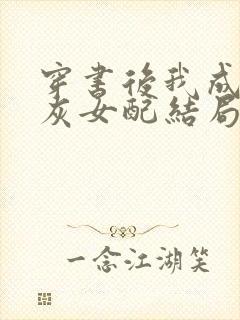 穿書後我成
灰女配結局
一念江湖笑